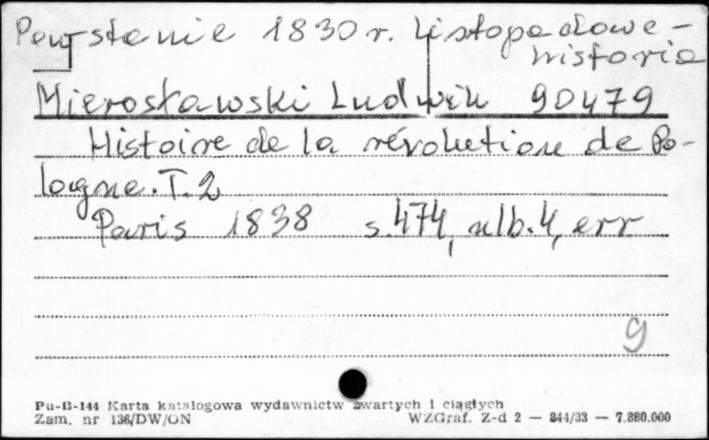 Powstanie 1830 r. Listopadowe -
historia
Mierosławski Ludwik 90479
Histoire de la révolution de Po-
logne. T. 2
Paris 1838 s. 474, alb. 4, err
9
Pu-B-144 Karta katalogowa wydawnictw zwartych i ciągłych
Zam. nr 136/DW/ON WZGraf. Z-d 2 — 844/33 — 7.880.000